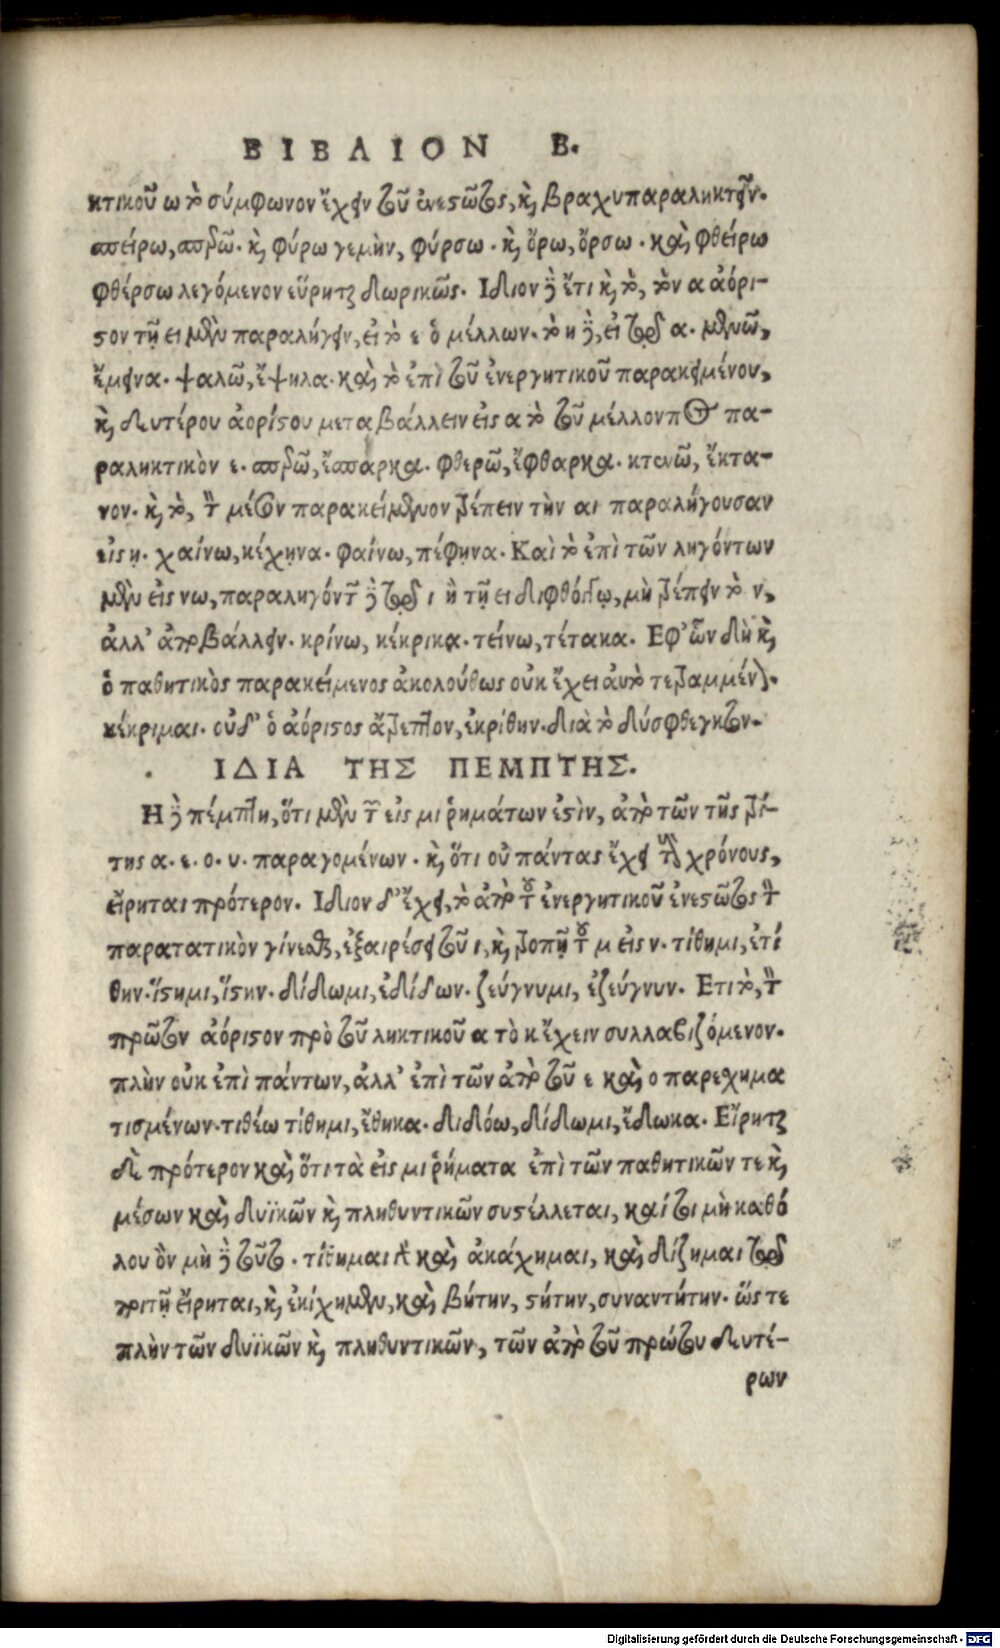 ΒΙΒΛΙΟΝ Β.
κτικοῦ ω τὸ σύμφωνον ἔχειν τοῦ ἐνεστῶτος, καὶ βραχυπαραληκτεῖν.
σπείρω, σπερῶ. καὶ φύρω γεμὴν, φύρσω. καὶ ὄρω, ὄρσω. καὶ φθείρω
φθέρσω λεγόμενον εὕρηται δωρικῶς. Ιδιον δὲ ἔτι καὶ τὸ, τὸν α ἀόρι-
στον τῇ ει μὲν παραλήγειν, εἰ τὸ ε ὁ μέλλων. τὸ η δὲ, εἰ τὸ α. μενῶ,
ἔμεινα. ψαλῶ, ἔψηλα. καὶ τὸ ἐπὶ τοῦ ἐνεργητικοῦ παρακειμένου,
καὶ δευτέρου ἀορίστου μεταβάλλειν εἰς α τὸ τοῦ μέλλοντος πα-
ραληκτικὸν ε. σπερῶ, ἔσπαρκα. φθερῶ, ἔφθαρκα. κτενῶ, ἔκτα-
νον. καὶ τὸ, τὸν μέσον παρακείμενον τρέπειν τὴν αι παραλήγουσαν
εἰς η. χαίνω, κέχηνα. φαίνω, πέφηνα. Καὶ τὸ ἐπὶ τῶν ληγόντων
μὲν εἰς νω, παραληγόντων δὲ τῷ ι ἢ τῇ ει διφθόγγῳ, μὴ τρέπειν τὸ ν,
ἀλλ' ἀποβάλλειν. κρίνω, κέκρικα. τείνω, τέτακα. Εφ' ὧν δὴ καὶ
ὁ παθητικὸς παρακείμενος ἀκολούθως οὐκ ἔχει αὐτὸ τετραμμένον.
κέκριμαι. οὐδ' ὁ ἀόριστος ἄτρεπτον, ἐκρίθην. διὰ τὸ δύσφθεγκτον.
ΙΔΙΑ ΤΗΣ ΠΕΜΠΤΗΣ.
Η δὲ πέμπτη, ὅτι μὲν τῶν εἰς μι ῥημάτων ἐστὶν, ἀπὸ τῶν τῆς τρί-
της α. ε. ο. υ. παραγομένων. καὶ ὅτι οὐ πάντας ἔχει τοὺς χρόνους,
εἴρηται πρότερον. Ιδιον δ' ἔχει, τὸ ἀπὸ τοῦ ἐνεργητικοῦ ἐνεστῶτος τὸν
παρατατικὸν γίνεσθαι, ἐξαιρέσει τοῦ ι, καὶ τροπῇ τοῦ μ εἰς ν. τίθημι, ἐτί
θην. ἵστημι, ἵστην. δίδωμι, ἐδίδων. ζεύγνυμι, ἐζεύγνυν. Ετι τὸ, τὸν
πρῶτον ἀόριστον πρὸ τοῦ ληκτικοῦ α τὸ κ ἔχειν συλλαβιζόμενον.
πλὴν οὐκ ἐπὶ πάντων, ἀλλ' ἐπὶ τῶν ἀπὸ τοῦ ε καὶ ο παρεχημα
τισμένων. τιθέω τίθημι, ἔθηκα. διδόω, δίδωμι, ἔδωκα. Εἴρηται
δὲ πρότερον καὶ ὅτι τὰ εἰς μι ῥήματα ἐπὶ τῶν παθητικῶν τε καὶ
μέσων καὶ δυϊκῶν καὶ πληθυντικῶν συστέλλεται, καί τοι μὴ καθό
λου ὂν μὴ δὲ τοῦτο. τίθημαι γὰρ καὶ ἀκάχημαι, καὶ δίζημαι
εἴρηται, καὶ ἐκίχημεν, καὶ βήτην, στήτην, συναντήτην. ὥστε
πλὴν τῶν δυϊκῶν καὶ πληθυντικῶν, τῶν ἀπὸ τοῦ πρώτου δευτέ-
ρων
Digitalisierung gefördert durch die Deutsche Forschungsgemeinschaft - DFG